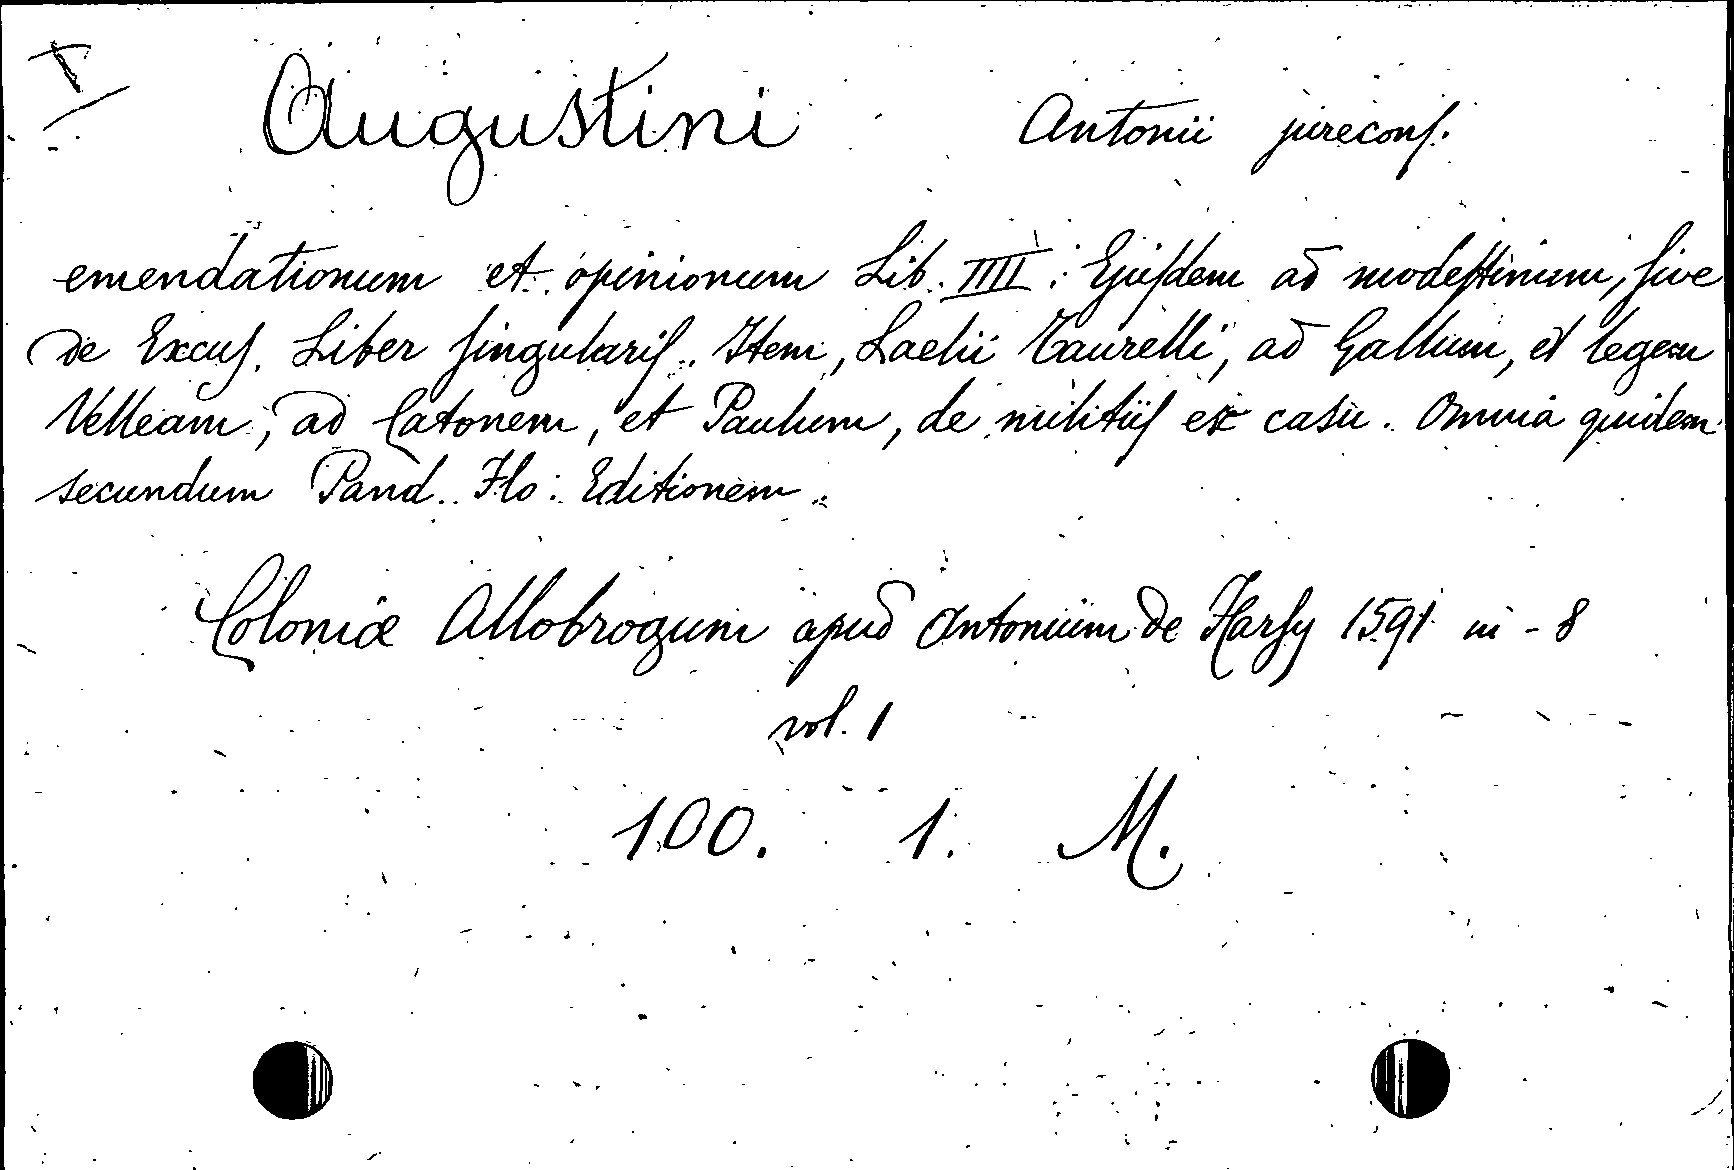 Augustini Antonii jureconſ.
emendationum et opinionum Lib. IIII : Ejuſdem ad modeſtinum, ſive
de Excuſ. Liber ſingulariſ. Item, Laelii Taurelli, ad Gallum, et legem
Velleam, ad Catonem, et Paulum, de militiiſ ex casu. Omnia quidem
secundum Pand. Flo : Editionem.
Coloniæ Allobrogum apud Antonium de Harſy 1591 in - 8
vol. 1
100. 1. M.